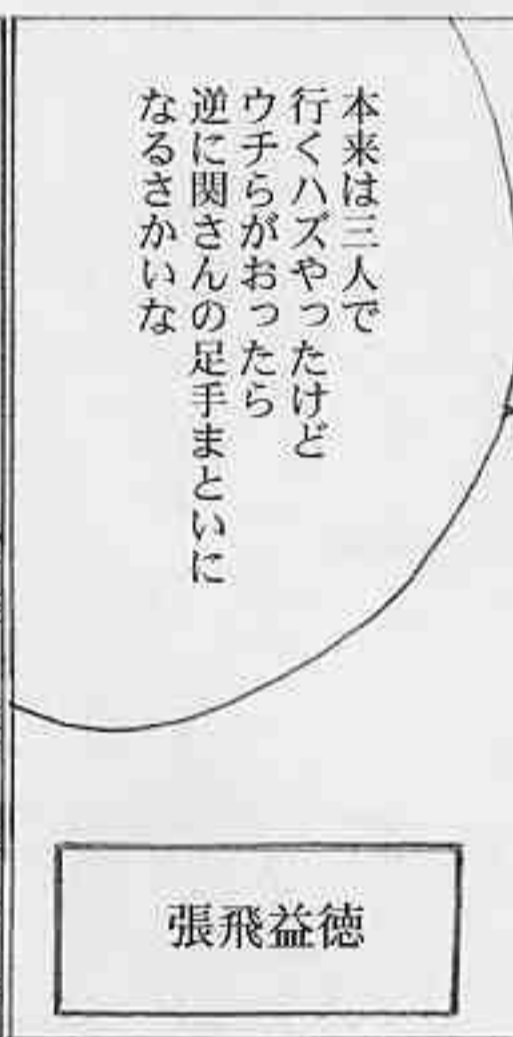 本来は三人で
行くハズやったけど
ウチらがおったら
逆に関さんの足手まといに
なるさかいな
張飛益徳